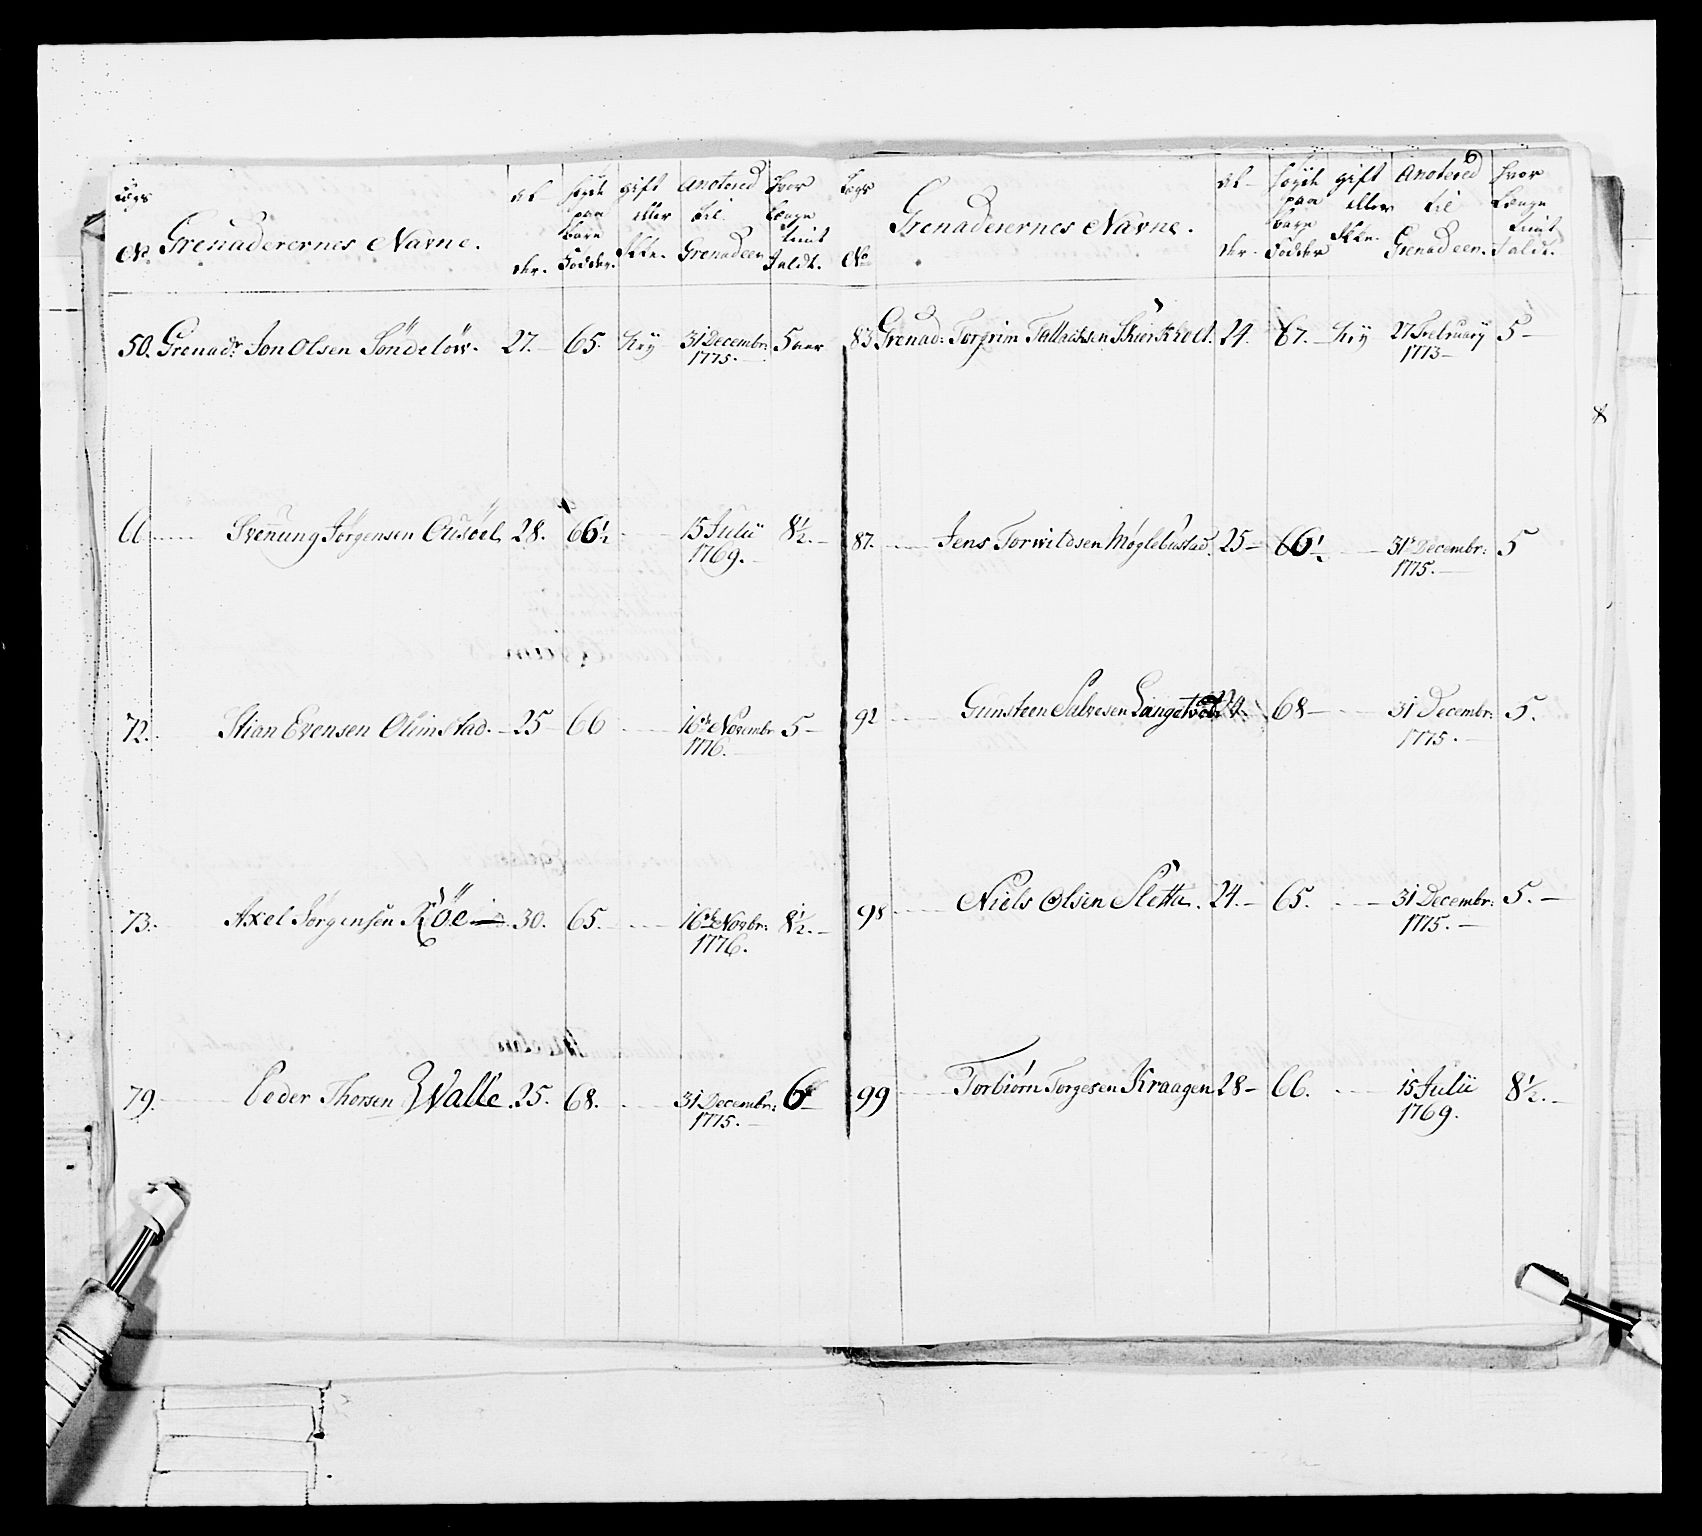 Lægs No. Grenaderernes Navne. Al- der. Høyde paa bare Födder. gift eller Ikke. Anotered til Grenadeer Hvor længe tient I aldt.
50. Grenadr Jon Olsen Söndelöw. 27. 65. Ney 31 Decembr: 5 aar
1775.
66 Svennung Jørgensen Ousöel. 28. 66½ 15 Julii 8½.
1769.
72. Stian Evensen Olimstad. 25 66 16de Novembr 5
1776.
73. Axel Jørgensen Röe 30. 65. 16de Novbr: 8½.
1776.
79. Peder Thorsen Walle. 25. 68. 31 Decembr: 6
1775.
6
Lægs No Grenaderernes Navne. Al- der. Høyde paa bare Födder gift eller Ikke. Anotered til Grenadeer. Hvor længe tient I aldt.
83 Grenad: Torgrim Tallachsen Skierkholt. 24. 67. Ney 27 February 5
1773
87. Jens Torwildsen Møglebustad. 25 66½ 31 Decembr: 5
1775.
92 Gunsteen Salvesen 24. 68 31 Decembr: 5.
1775.
98 Niels Olsen Sletta. 24. 65. 31 Decembr: 5.
1775.
99 Torbiørn Torgesen Kraagen 28 66. 15 Julii 8½.
1769.